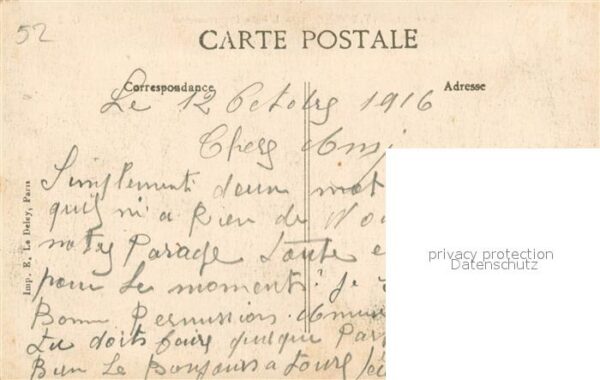 52
CARTE POSTALE
Correspondance
Adresse
Le 12 Octobre 1916
Chers Ami
Simplement deux mot
qu'il n'i a Rien de Nou
notre Parage Toute
pour le moment. Je
Bonne Permissions.
Tu doits faire quelque Par
Bien Le Bonjours a Toute
Imp. E. Le Deley, Paris
privacy protection
Datenschutz